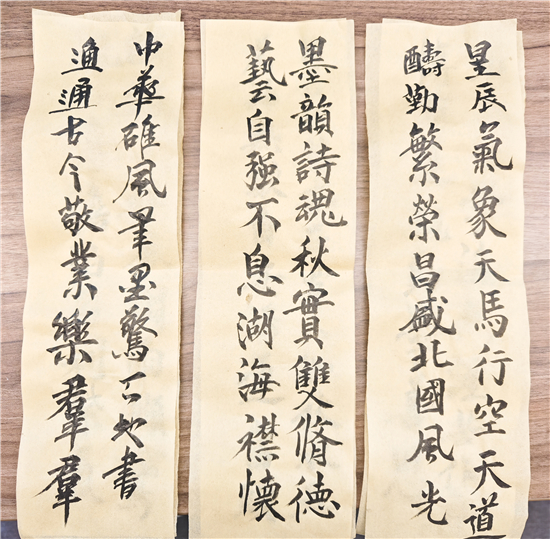 星辰氣象天馬行空天道
醻勤繁榮昌盛北國風光
墨韻詩魂秋實雙脩德
藝自强不息湖海襟懷
中華雄風墨驚書
通古今敬業樂羣羣